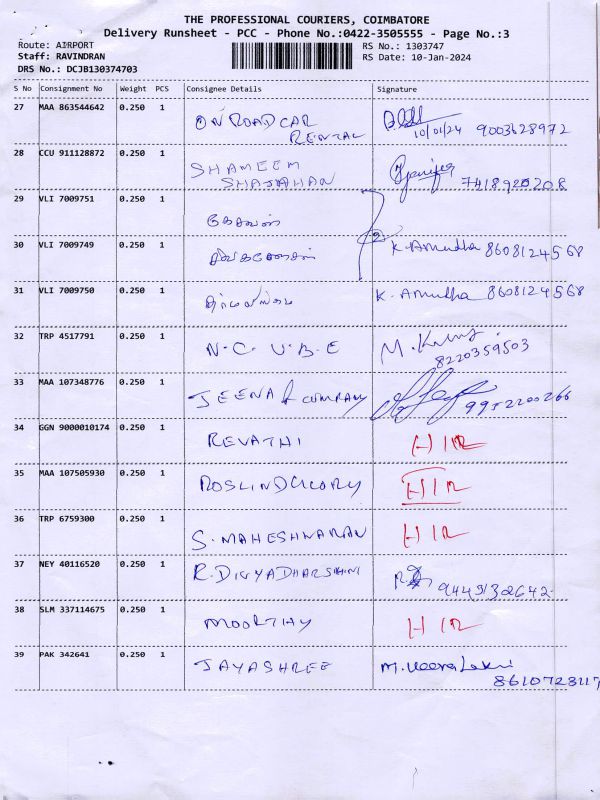 THE PROFESSIONAL COURIERS, COIMBATORE
Delivery Runsheet - PCC - Phone No.:0422-3505555 - Page No.:3
Route: AIRPORT RS No.: 1303747
Staff: RAVINDRAN RS Date: 10-Jan-2024
DRS No.: DCJB130374703
S No Consignment No Weight PCS Consignee Details Signature
27 MAA 863544642 0.250 1
ON ROAD CAR
RENTAL 10/01/24 9003628972
28 CCU 911128872 0.250 1
SHAMEEM
SHAJAHAN 7418920208
29 VLI 7009751 0.250 1
30 VLI 7009749 0.250 1
K. Amudha 8608124568
31 VLI 7009750 0.250 1
K. Amudha 8608124568
32 TRP 4517791 0.250 1
N.C.U.B.E M.
8220359503
33 MAA 107348776 0.250 1
JEENA & COMPANY 9952200266
34 GGN 9000010174 0.250 1
REVATHI HIR
35 MAA 107505930 0.250 1
HIR
36 TRP 6759300 0.250 1
S. MAHESHWARAN HIR
37 NEY 40116520 0.250 1
R. DIVYADHARSHINI
9445132642
38 SLM 337114675 0.250 1
MOORTHY HIR
39 PAK 342641 0.250 1
JAYASHREE M.